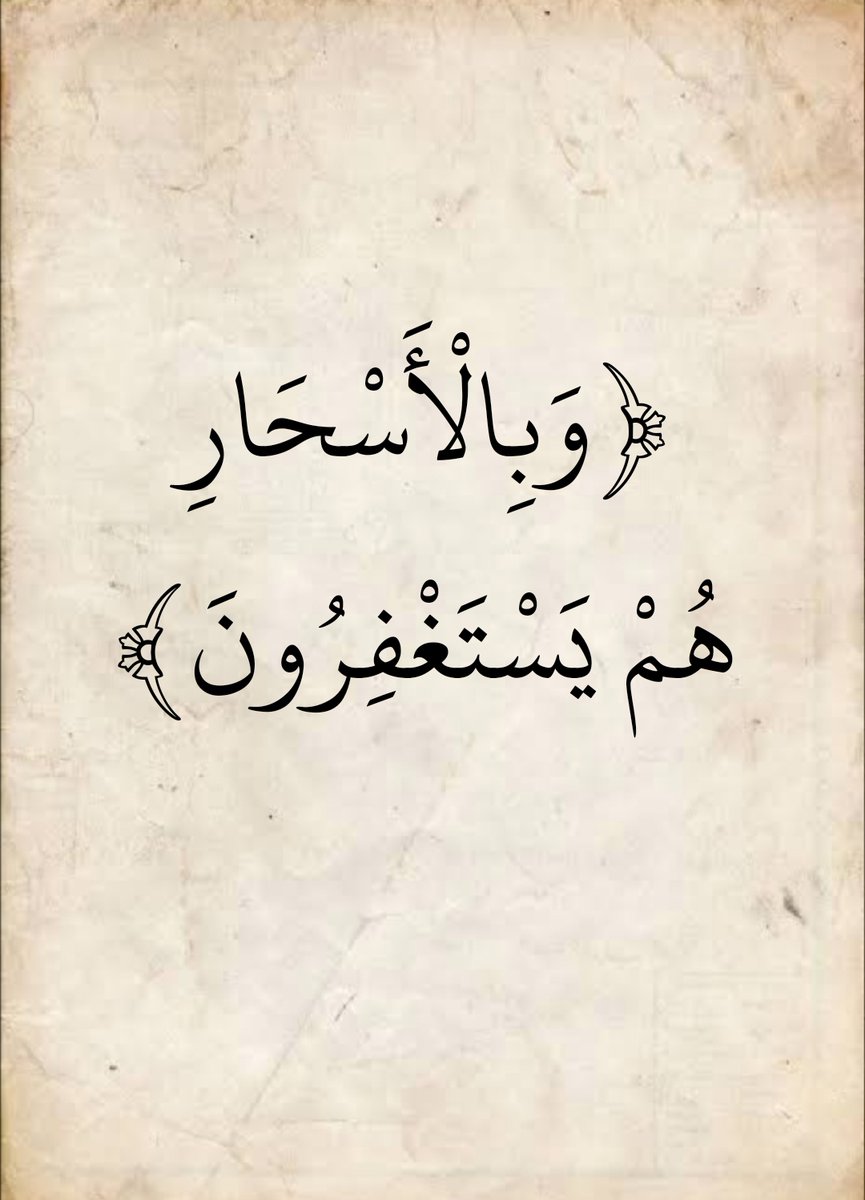 ﴿وَبِالْأَسْحَارِ
هُمْ يَسْتَغْفِرُونَ﴾